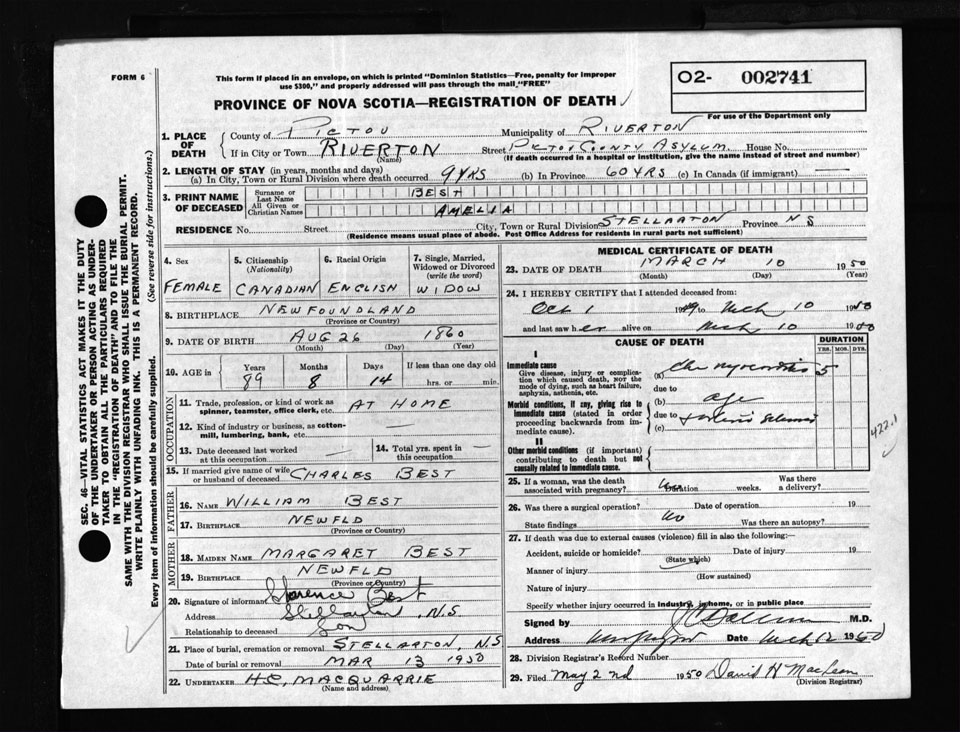 FORM 6
This form if placed in an envelope, on which is printed "Dominion Statistics—Free, penalty for improper
use $300," and properly addressed will pass through the mail "FREE"
O2- 002741
PROVINCE OF NOVA SCOTIA—REGISTRATION OF DEATH
For use of the Department only
1. PLACE OF DEATH
County of PICTOU Municipality of RIVERTON
If in City or Town RIVERTON Street PICTOU COUNTY ASYLUM. House No.
(Name) (If death occurred in a hospital or institution, give the name instead of street and number)
2. LENGTH OF STAY (in years, months and days)
(a) In City, Town or Rural Division where death occurred 9 YRS (b) In Province 60 YRS (c) In Canada (if immigrant) —
3. PRINT NAME OF DECEASED
Surname or Last Name BEST
All Given or Christian Names AMELIA
RESIDENCE No. Street City, Town or Rural Division STELLARTON Province N S
(Residence means usual place of abode. Post Office Address for residents in rural parts not sufficient)
4. Sex FEMALE
5. Citizenship (Nationality) CANADIAN
6. Racial Origin ENGLISH
7. Single, Married, Widowed or Divorced (write the word) WIDOW
8. BIRTHPLACE NEWFOUNDLAND
(Province or Country)
9. DATE OF BIRTH AUG 26 1860
(Month) (Day) (Year)
10. AGE IN Years 89 Months 8 Days 14 If less than one day old hrs. or min.
OCCUPATION
11. Trade, profession, or kind of work as spinner, teamster, office clerk, etc. AT HOME
12. Kind of industry or business, as cotton-mill, lumbering, bank, etc. —
13. Date deceased last worked at this occupation —
14. Total yrs. spent in this occupation —
15. If married give name of wife or husband of deceased CHARLES BEST
FATHER
16. NAME WILLIAM BEST
17. BIRTHPLACE NEWFLD
(Province or Country)
MOTHER
18. MAIDEN NAME MARGARET BEST
19. BIRTHPLACE NEWFLD
(Province or Country)
20. Signature of informant Clarence Best
Address Stellarton, N.S
Relationship to deceased Son
21. Place of burial, cremation or removal STELLARTON, N.S
Date of burial or removal MAR 13 1950
22. UNDERTAKER H.C. MACQUARRIE
(Name and address)
MEDICAL CERTIFICATE OF DEATH
23. DATE OF DEATH MARCH 10 1950
(Month) (Day) (Year)
24. I HEREBY CERTIFY that I attended deceased from:
Oct 1 1949 to Mch 10 1950
and last saw her alive on Mch 10 1950
CAUSE OF DEATH
DURATION
YRS. MOS. DYS.
I
Immediate cause
Give disease, injury or complication which caused death, not the mode of dying, such as heart failure, asphyxia, asthenia, etc.
(a) Chr myocarditis 5
due to
Morbid conditions, if any, giving rise to immediate cause (stated in order proceeding backwards from immediate cause).
(b) age
due to
(c)
II
Other morbid conditions (if important) contributing to death but not causally related to immediate cause.
422.1
25. If a woman, was the death associated with pregnancy? No Duration weeks. Was there a delivery?
26. Was there a surgical operation? Date of operation 19
State findings No Was there an autopsy?
27. If death was due to external causes (violence) fill in also the following:—
Accident, suicide or homicide? Date of injury 19
(State which)
Manner of injury
(How sustained)
Nature of injury
Specify whether injury occurred in industry, in home, or in public place
Signed by M.D.
Address Date Mch 12 1950
28. Division Registrar's Record Number
29. Filed May 2nd 1950 David H MacLean
(Division Registrar)
SEC. 46—VITAL STATISTICS ACT MAKES IT THE DUTY
OF THE UNDERTAKER OR PERSON ACTING AS UNDER-
TAKER TO OBTAIN ALL THE PARTICULARS REQUIRED
IN THE "REGISTRATION OF DEATH" AND TO FILE THE
SAME WITH THE DIVISION REGISTRAR WHO SHALL ISSUE THE BURIAL PERMIT.
WRITE PLAINLY WITH UNFADING INK. THIS IS A PERMANENT RECORD.
Every item of information should be carefully supplied. (See reverse side for instructions.)